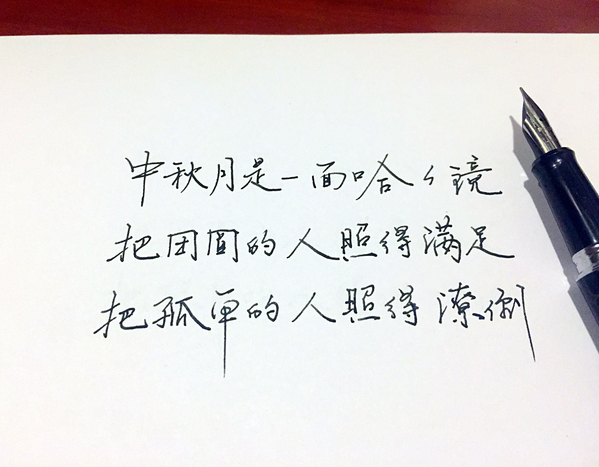 中秋月是一面哈哈镜
把团圆的人照得满足
把孤单的人照得潦倒